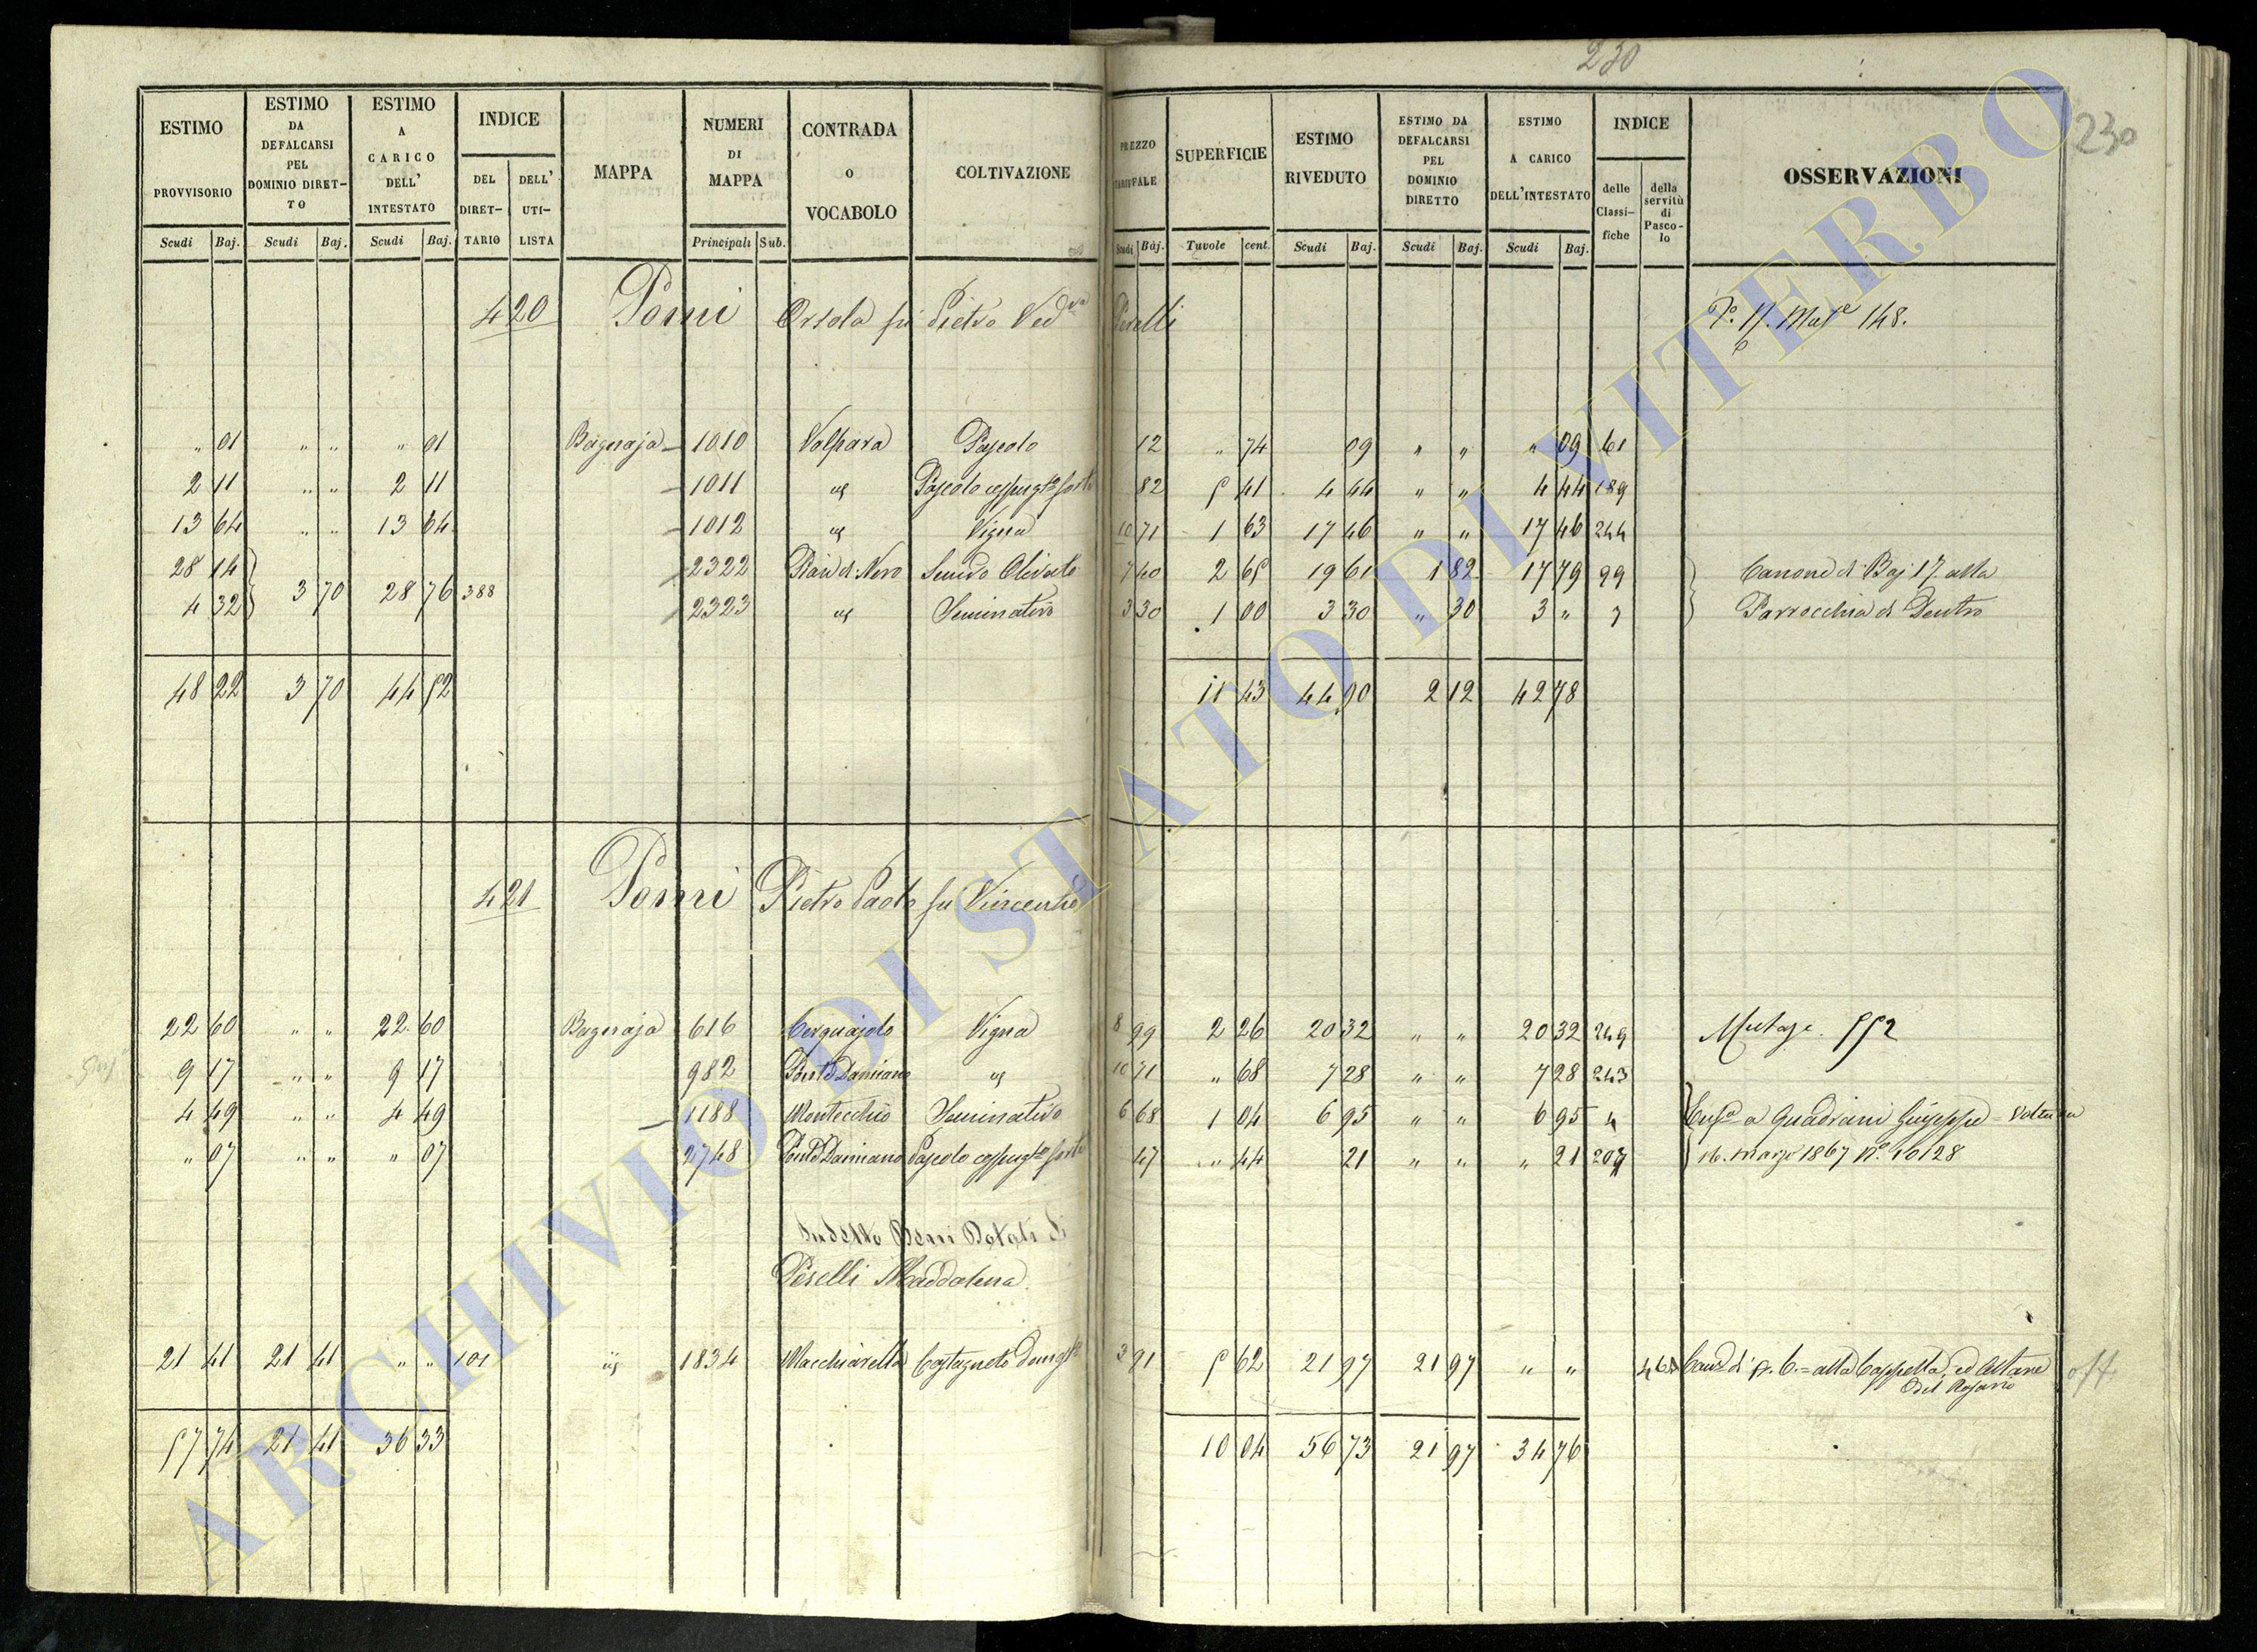 230
230
ESTIMO PROVVISORIO Scudi Baj.
ESTIMO DA DEFALCARSI PEL DOMINIO DIRETTO Scudi Baj.
ESTIMO A CARICO DELL' INTESTATO Scudi Baj.
INDICE DEL DIRETTARIO DELL' UTILISTA
MAPPA
NUMERI DI MAPPA Principali Sub.
CONTRADA O VOCABOLO
COLTIVAZIONE
PREZZO TARIFFALE Scudi Baj.
SUPERFICIE Tavole cent.
ESTIMO RIVEDUTO Scudi Baj.
ESTIMO DA DEFALCARSI PEL DOMINIO DIRETTO Scudi Baj.
ESTIMO A CARICO DELL'INTESTATO Scudi Baj.
INDICE delle Classifiche della servitù di Pascolo
OSSERVAZIONI
420 Pomi Orsola fu Pietro Ved
148.
" 01 " " " 01 Bagnaja 1010 Volpara Pascolo 12 " 74 09 " " " 09 61
2 11 " " 2 11 1011 Pascolo forte 82 5 41 4 44 " " 4 44 189
13 64 " " 13 64 1012 Vigna 10 71 1 63 17 46 " " 17 46 244
28 14 2322 Olivato 7 40 2 65 19 61 1 82 17 79 99 Canone di Baj 17. alla
3 70 28 76 388
4 32 2323 Seminativo 3 30 1 00 3 30 " 30 3 " Parrocchia di Dentro
48 22 3 70 44 52 11 43 44 90 2 12 42 78
421 Pomi Pietro Paolo fu Vincenzo
22 60 " " 22 60 Bagnaja 616 Vigna 8 99 2 26 20 32 " " 20 32 249 552
9 17 " " 9 17 982 Damiano 10 71 " 68 7 28 " " 7 28 243
4 49 " " 4 49 1188 Montecchio Seminativo 6 68 1 04 6 95 " " 6 95 4 a Quadrani Giuseppe
" 07 " " " 07 2748 Damiano Pascolo forte 47 " 44 21 " " " 21 16. marzo 1867 N.° 10128
Sudetto Beni Dotali di
Peselli Maddalena
21 41 21 41 " " 101 1834 Macchiarella Castagneto 3 91 5 62 21 97 21 97 " " alla Cappella, ed Altare
del Rosario
57 74 21 41 36 33 10 04 56 73 21 97 34 76
ARCHIVIO DI STATO DI VITERBO